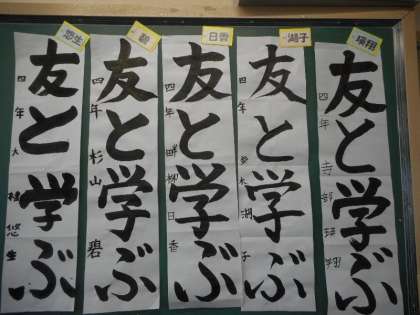 瑛翔
友と学ぶ
四年 寺部瑛翔
湖子
友と学ぶ
四年 木湖子
日香
友と学ぶ
四年 畔柳日香
碧
友と学ぶ
四年 杉山碧
悠生
友と学ぶ
四年 大 悠生